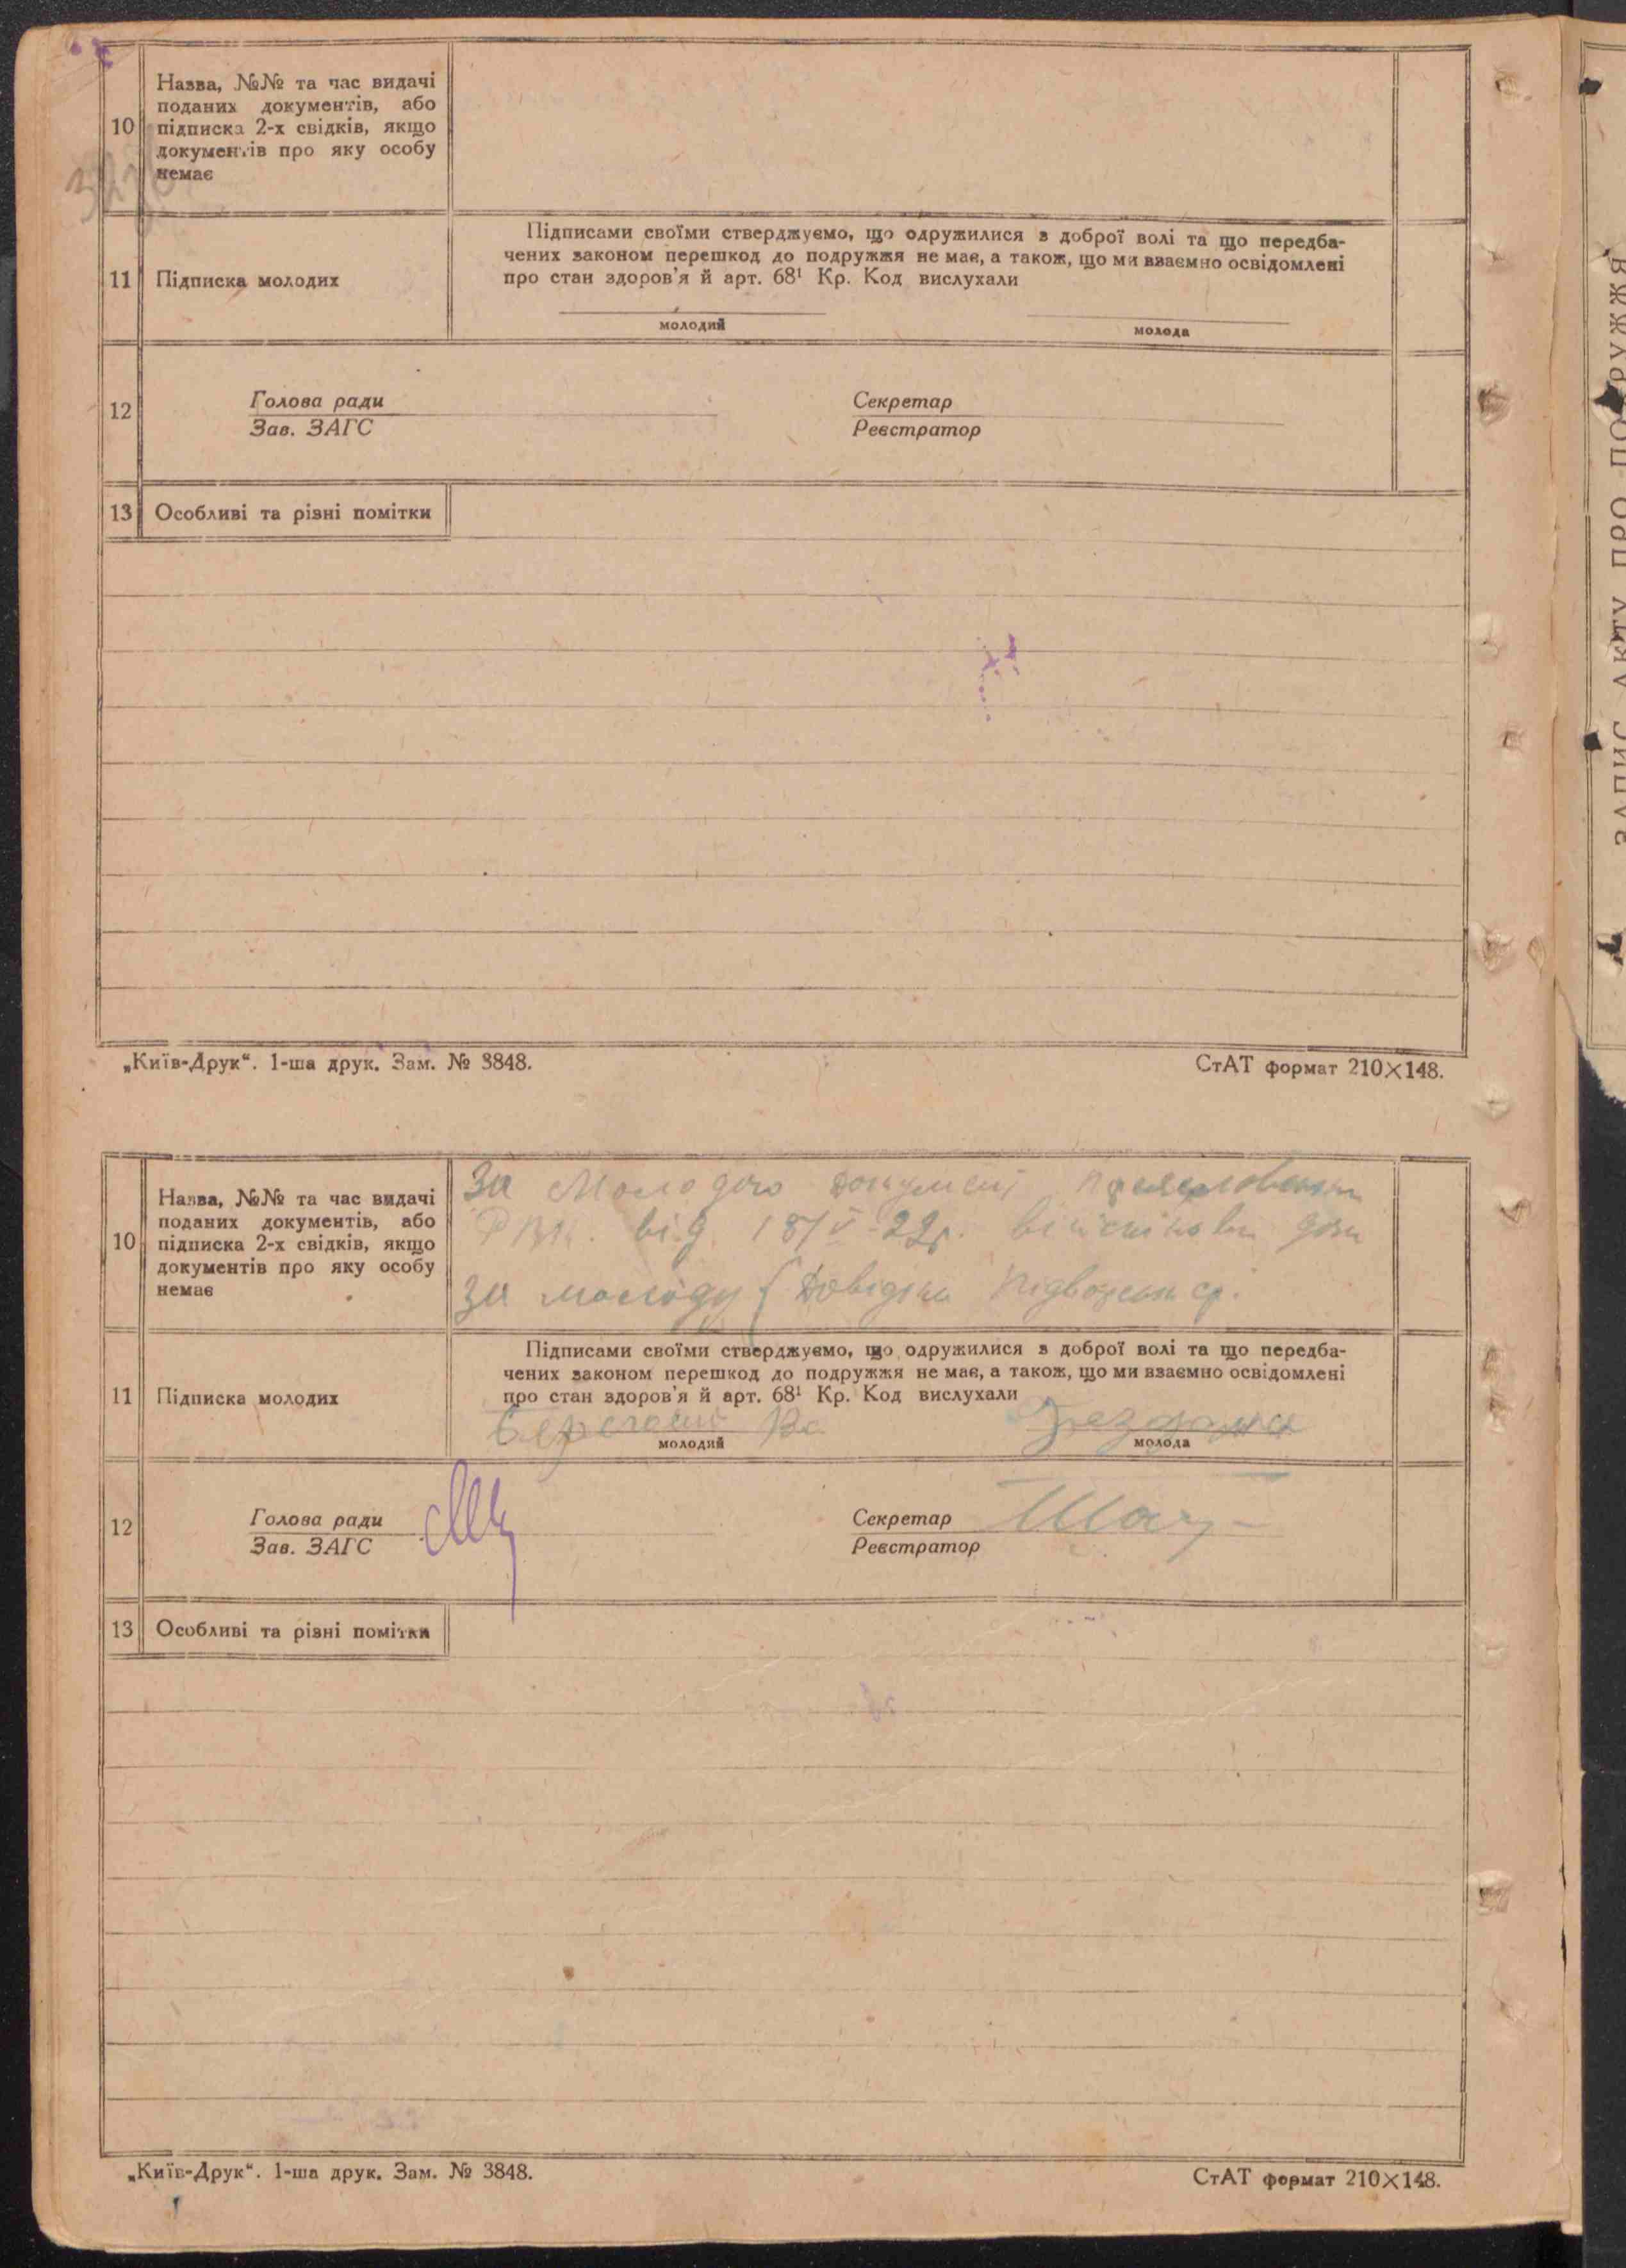 10
Назва, №№ та час видачі
поданих документів, або
підписка 2-х свідків, якщо
документів про яку особу
немає
11
Підписка молодих
Підписами своїми стверджуємо, що одружилися з доброї волі та що передба-
чених законом перешкод до подружжя не має, а також, що ми взаємно освідомлені
про стан здоров'я й арт. 68¹ Кр. Код вислухали
молодий
молода
12
Голова ради
Зав. ЗАГС
Секретар
Реєстратор
13
Особливі та різні помітки
„Київ-Друк“. 1-ша друк. Зам. № 3848.
СтАТ формат 210×148.
10
Назва, №№ та час видачі
поданих документів, або
підписка 2-х свідків, якщо
документів про яку особу
немає
За молодого документ
РВК. від 18/V-22р.
За молоду Довідка
11
Підписка молодих
Підписами своїми стверджуємо, що одружилися з доброї волі та що передба-
чених законом перешкод до подружжя не має, а також, що ми взаємно освідомлені
про стан здоров'я й арт. 68¹ Кр. Код вислухали
молодий
молода
12
Голова ради
Зав. ЗАГС
Секретар
Реєстратор
13
Особливі та різні помітки
„Київ-Друк“. 1-ша друк. Зам. № 3848.
СтАТ формат 210×148.
ЗАПИС АКТУ ПРО ПОДРУЖЖЯ